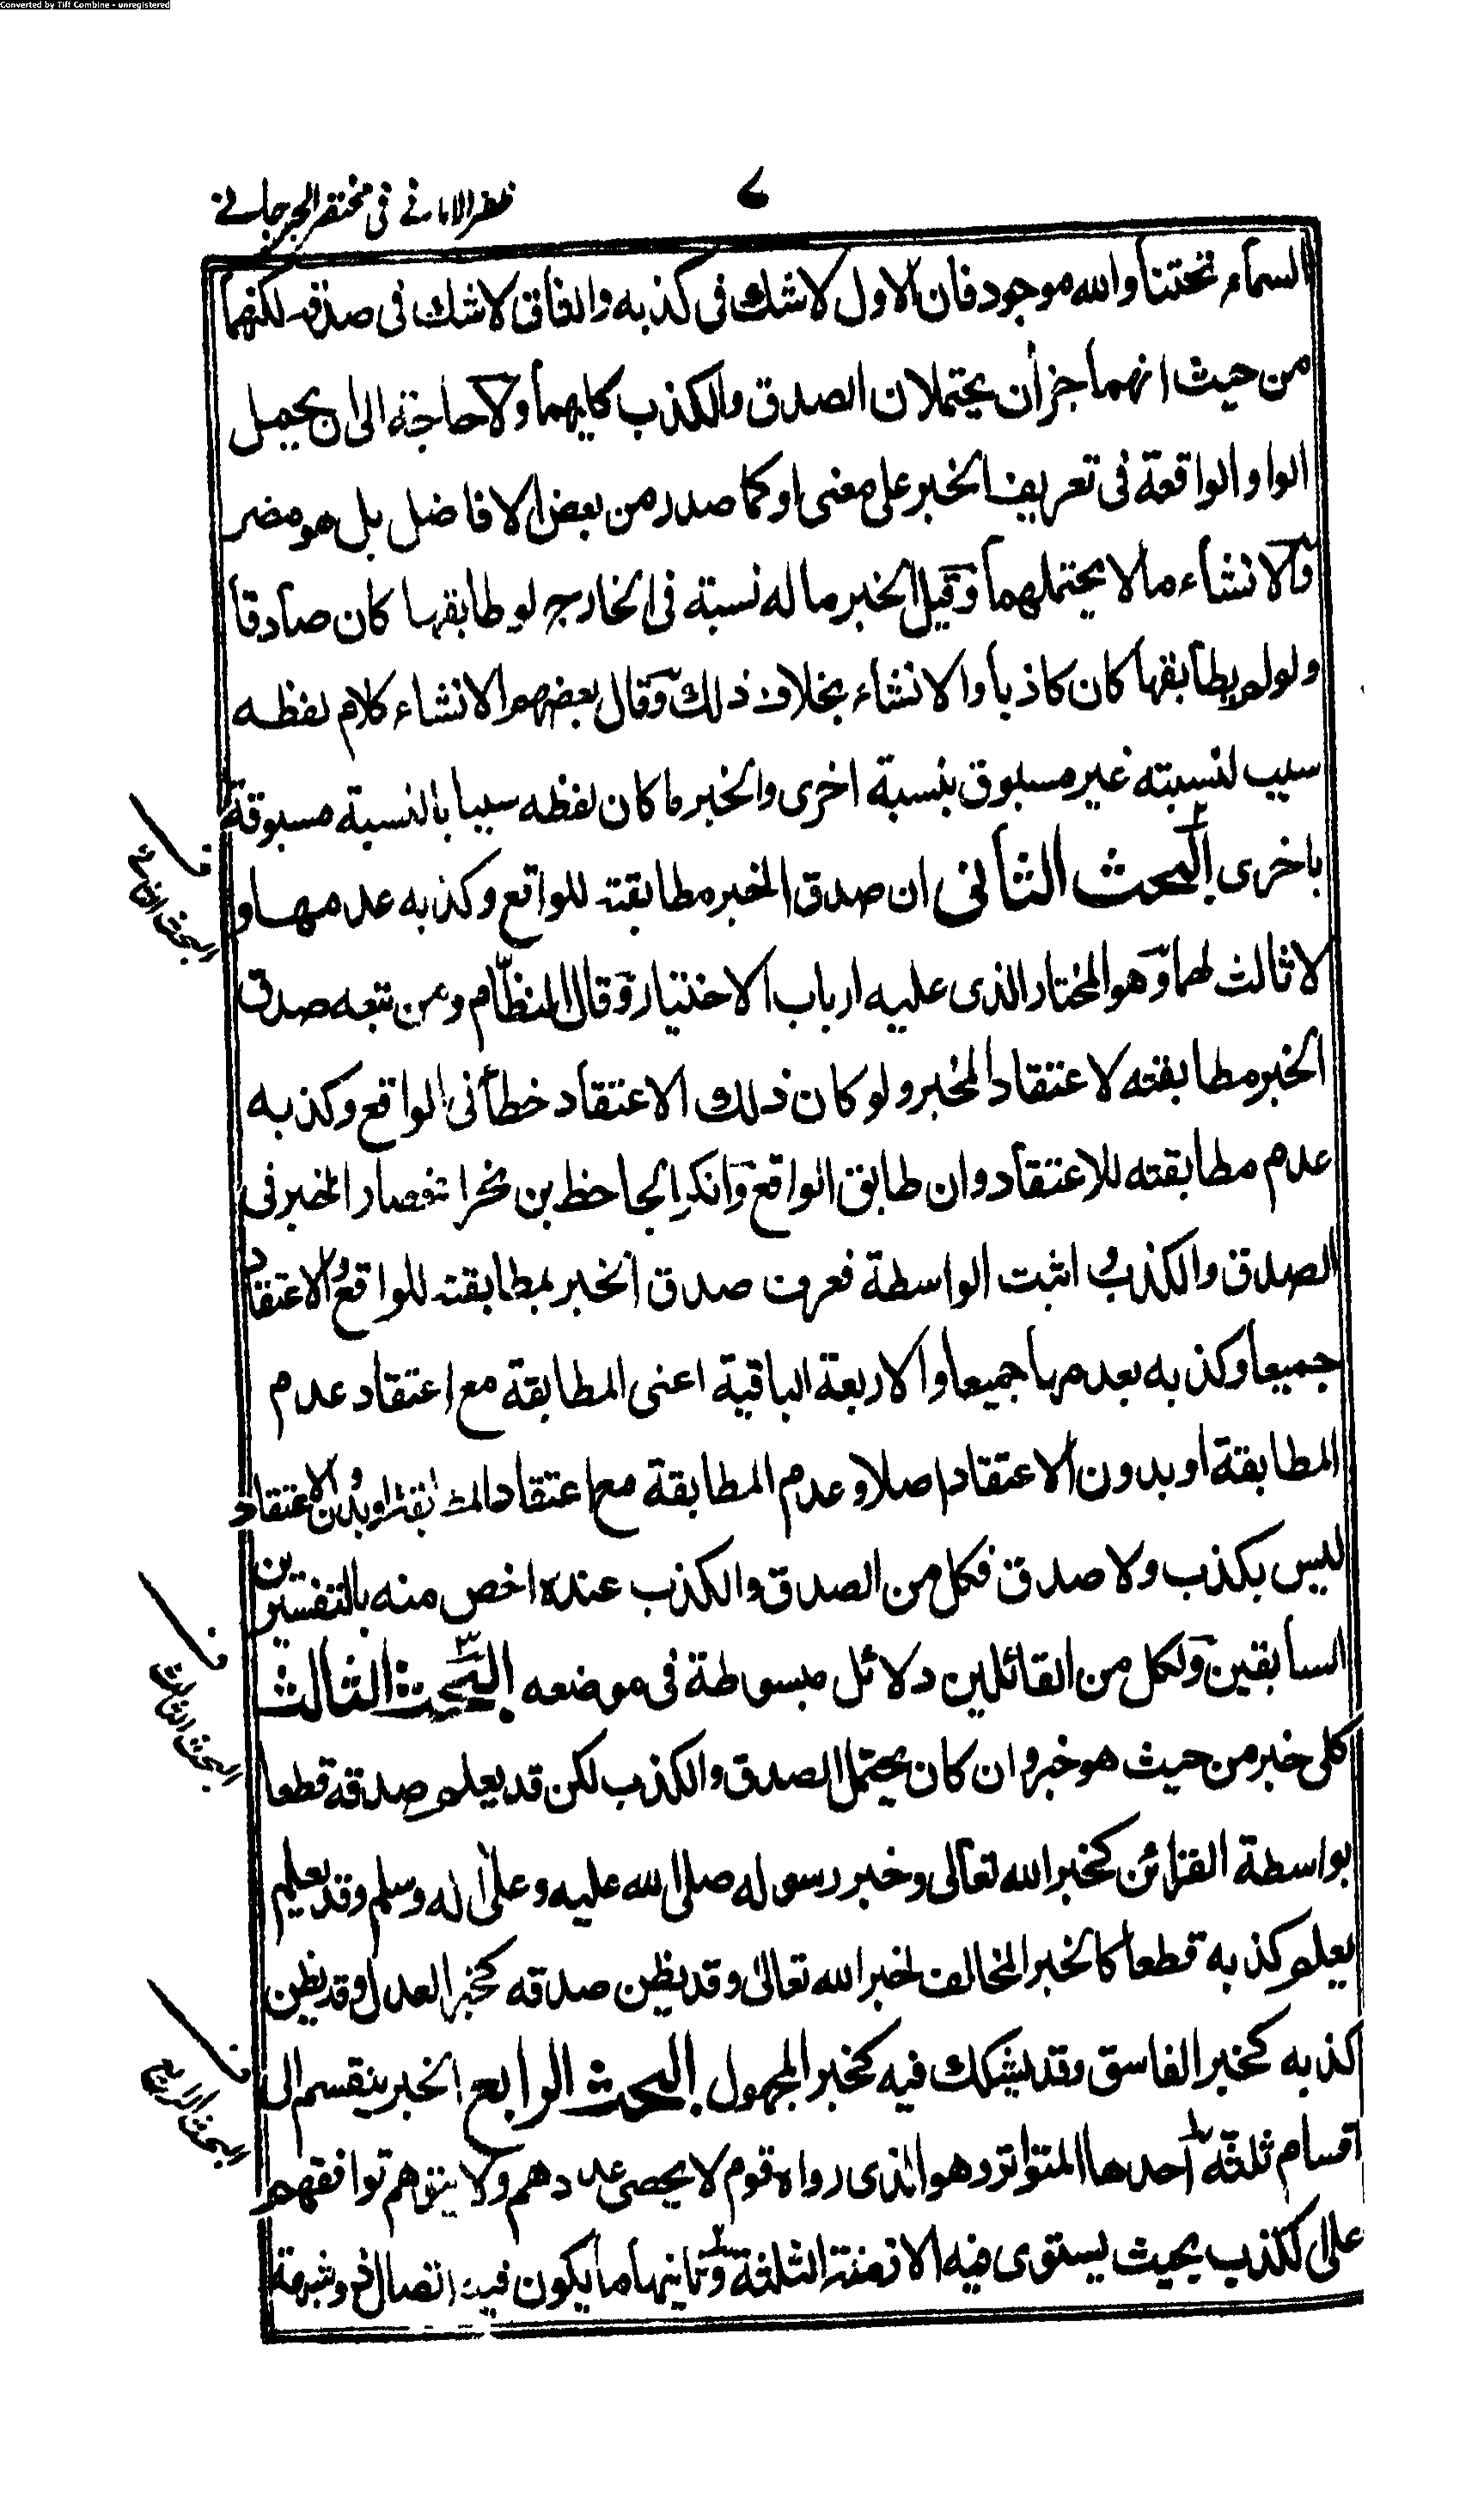 Converted by Tiff Combine - unregistered
ظفر الامانے فی مختصر الجرجانے
السماء تحتنا والله موجود فان الاول لا شك فى كذبه والثانى لا شك فى صدقه لكنهما
من حيث انهما خبران يحتملان الصدق والكذب كليهما ولا حاجة الى ان يحمل
الواو الواقعة فى تعريف الخبر على معنى او كما صدر من بعض الافاضل بل هو مضر
والانشاء ما لا يحتملهما وقيل الخبر ما له نسبة فى الخارج لو طابقها كان صادقا
ولو لم يطابقها كان كاذبا والانشاء بخلاف ذلك وقال بعضهم الانشاء كلام لفظه
سبب لنسبته غير مسبوق بنسبة اخرى والخبر ما كان لفظه سببا بالنسبة مسبوقة
باخرى البحث الثانى ان صدق الخبر مطابقته للواقع وكذبه عدمها و
لا ثالث لهما وهو المختار الذى عليه ارباب الاختيار وقال النظّام ومن تبعه صدق
الخبر مطابقته لاعتقاد المخبر ولو كان ذلك الاعتقاد خطأ فى الواقع وكذبه
عدم مطابقته للاعتقاد وان طابق الواقع وانكر الجاحظ بن بحر انحصار الخبر فى
الصدق والكذب و اثبت الواسطة فعرف صدق الخبر بمطابقته للواقع و الاعتقاد
جميعا وكذبه بعدمها جميعا والاربعة الباقية اعنى المطابقة مع اعتقاد عدم
المطابقة او بدون الاعتقاد اصلا وعدم المطابقة مع اعتقاد المطابقة او بدون الاعتقاد
ليس بكذب ولا صدق فكل من الصدق والكذب عنده اخص منه بالتفسيرين
السابقين ولكل من القائلين دلائل مبسوطة فى موضعه البحث الثالث
كل خبر من حيث هو خبر وان كان يحتمل الصدق والكذب لكن قد يعلم صدقه قطعا
بواسطة القرائن كخبر الله تعالى وخبر رسوله صلى الله عليه وعلى اله وسلم وقد يعلم
يعلم كذبه قطعا كالخبر المخالف لخبر الله تعالى وقد يظن صدقه كخبر العدل وقد يظن
كذبه كخبر الفاسق وقد يشكك فيه كخبر المجهول البحث الرابع الخبر ينقسم الى
اقسام ثلثة احدها المتواتر وهو الذى رواه قوم لا يحصى عددهم ولا يتوهم توافقهم
على الكذب بحيث يستوى فيه الازمنة الثلثة وثانيها ما يكون فيه اتصال فى وشبهة
البحث الثانى
البحث الثالث
البحث الرابع